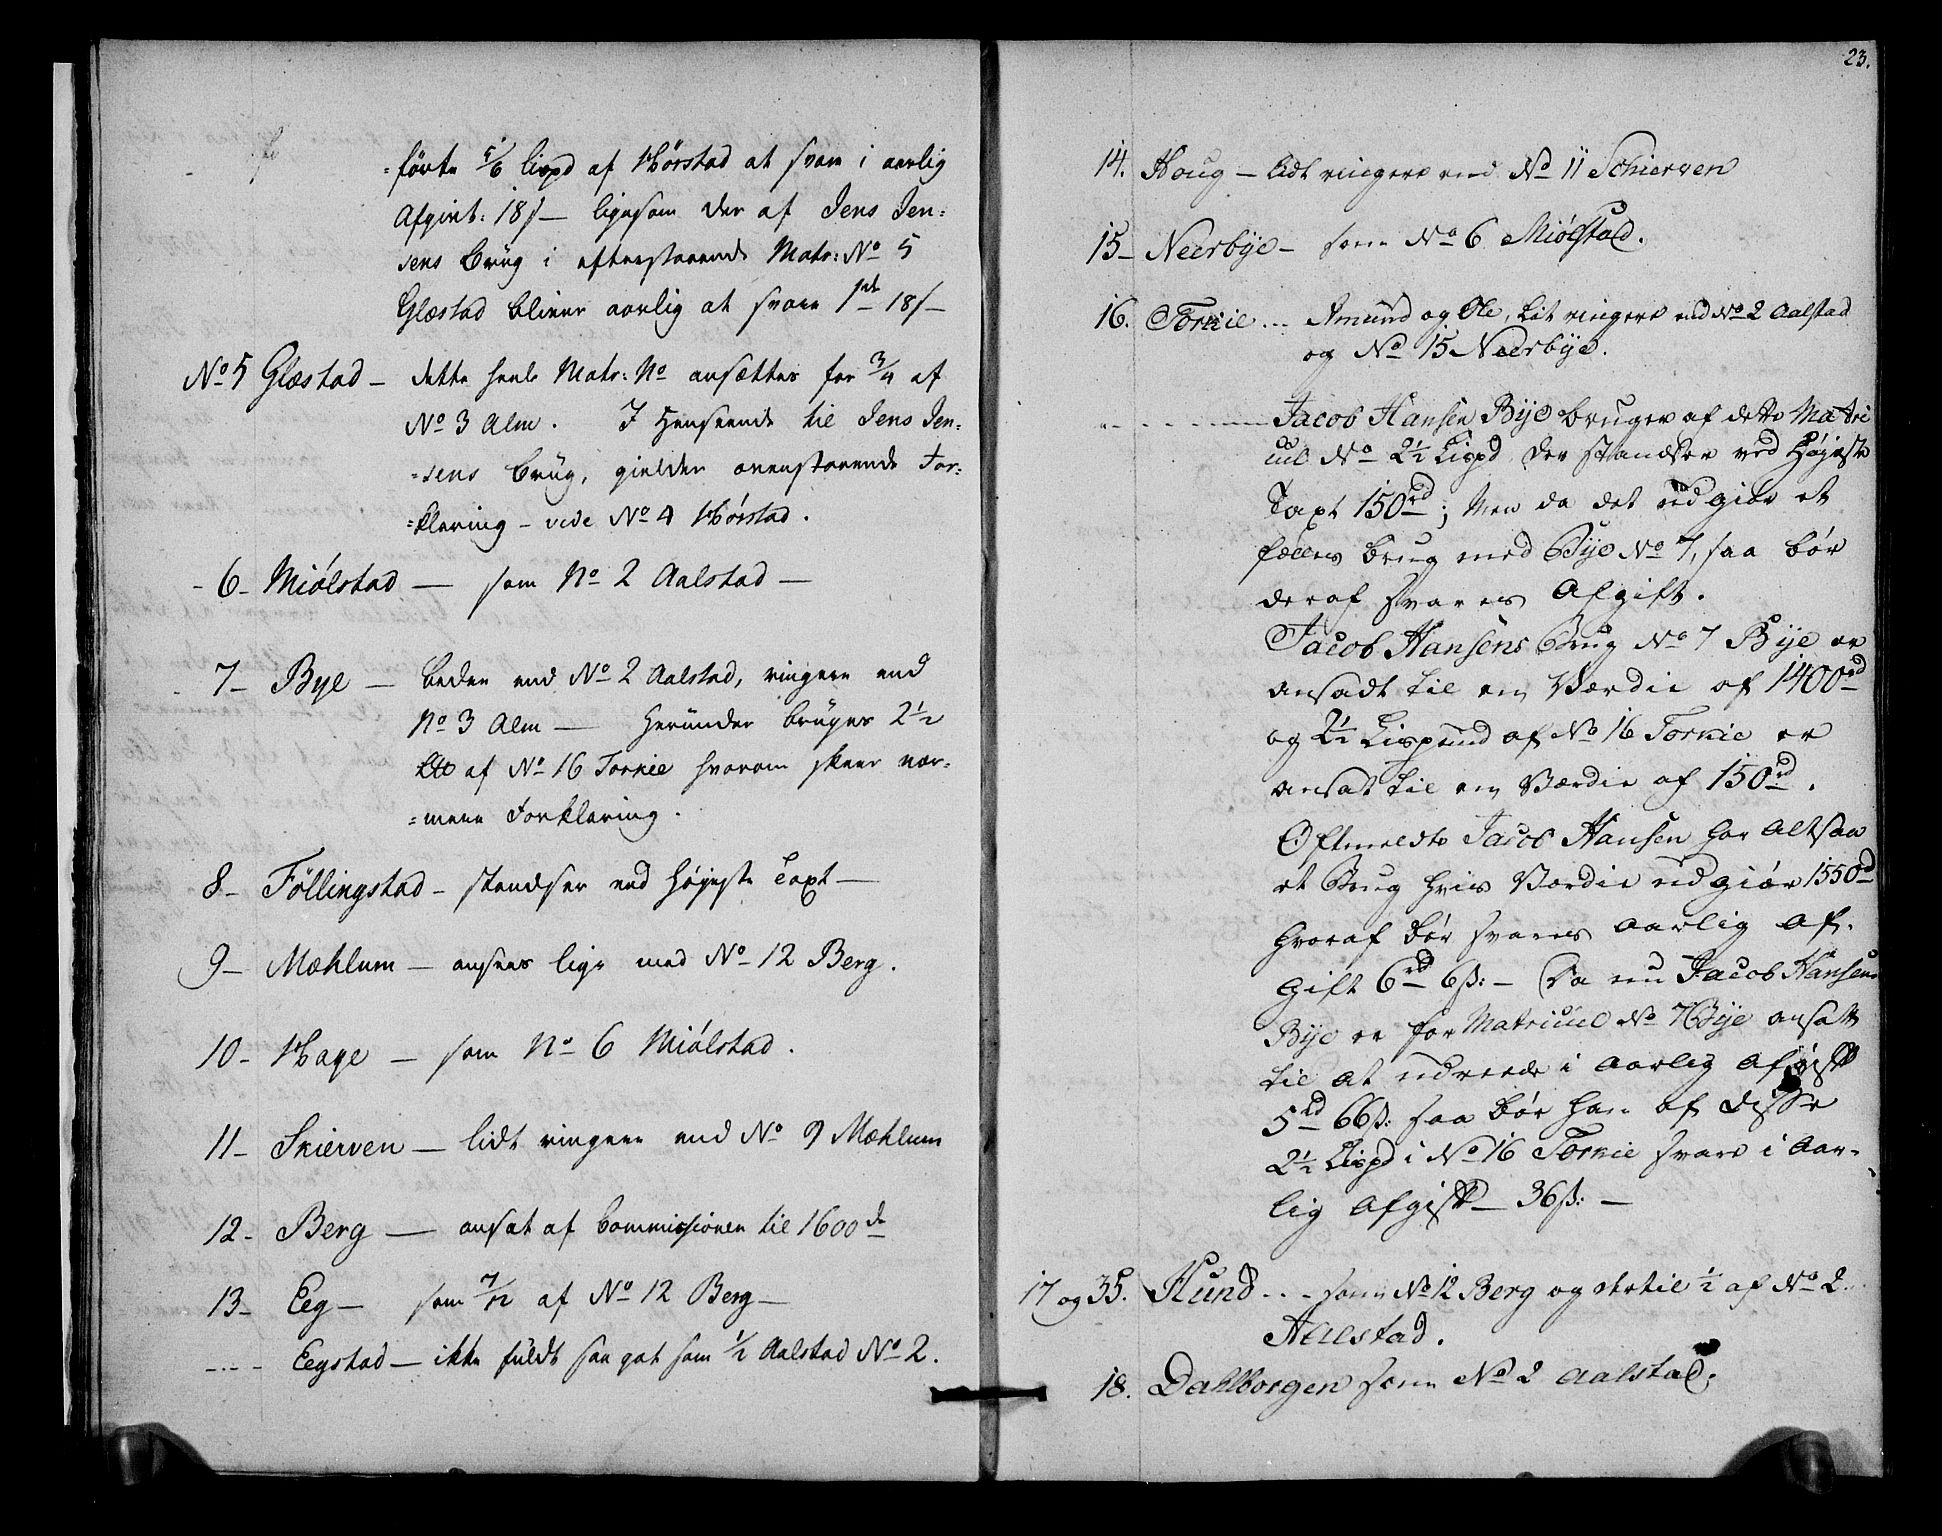 =førte 5/6 lispd af Hørstad at svare i aarlig
Afgivt: 18 s — ligesom der af Jens Jen=
sens Brüg i efterstaaende Matr: No 5
Glæstad bliver aarlig at svare 1 rd 18 s —
No 5 Glæstad — dette heele Matr: No ansættes for 3/4 af
No 3 Alm. I Henseende til Jens Jen=
=sens Brüg, gielder ovenstaaende For=
=klaring — vide No 4 Hørstad.
- 6 - Miølstad — som No 2 Aalstad —
7 - Bye — bedre end No 2 Aalstad, ringere end
No 3 Alm — heründer brüges 2 1/2
af No 16 Torkie hvorom skeer nær=
=mere Forklaring.
8 - Föllingstad — standser ved høyeste Taxt —
9 - Mæhlum — ansees lige med No 12 Berg.
10 - Hage — som No 6 Miølstad.
11 - Skierven — lidt ringere end No 9 Mæhlum
12 - Berg — ansat af Commissionen til 1600 rd
13 - Eeg — som 7/12 af No 12 Berg —
.... Eegstad — ikke füldt saa got som 1/2 Aalstad No 2.
23.
14. Houg — lidt ringere end No 11 Schierven
15 - Neerbÿe — som No 6 Miölstad.
16. Torkie ... Amund og Ole, lit ringere end No 2 Aalstad
og No 15 Neerbÿe.
Jacob Hansen Bÿe bruger af dette Matri
cul No 2 1/2 Lispd der standser ved Høÿeste
Taxt 150 rd; Men da det udgiör et
fælles brug med Bÿe No 7, saa bör
deraf svares Afgift.
Jacob Hansens Brug No 7 Bÿe er
ansadt til en Værdie af 1400 rd
og 2 1/2 Lispund af No 16 Torkie er
ansat til en Værdie af 150 rd.
Oftmeldte Jacob Hansen har altsaa
et Brug hvis Værdie udgiör 1550 rd
hvoraf bör svares aarlig af-
gift 6 rd 6 ß: — Da nu Jacob Hansen
Bÿe er for Matricul No 7 Bÿe ansatt
til at udreede i aarlig afgift
5 rd 66 ß: saa bör han af disse
2 1/2 Lispd i No 16 Torkie svare i aar-
lig afgift — 36 ß: —
17 og 35. Hund - - - som No 12 Berg og dertil 1/2 af No 2
Aalstad.
18. Dahlborgen som No 2 Aalstad.